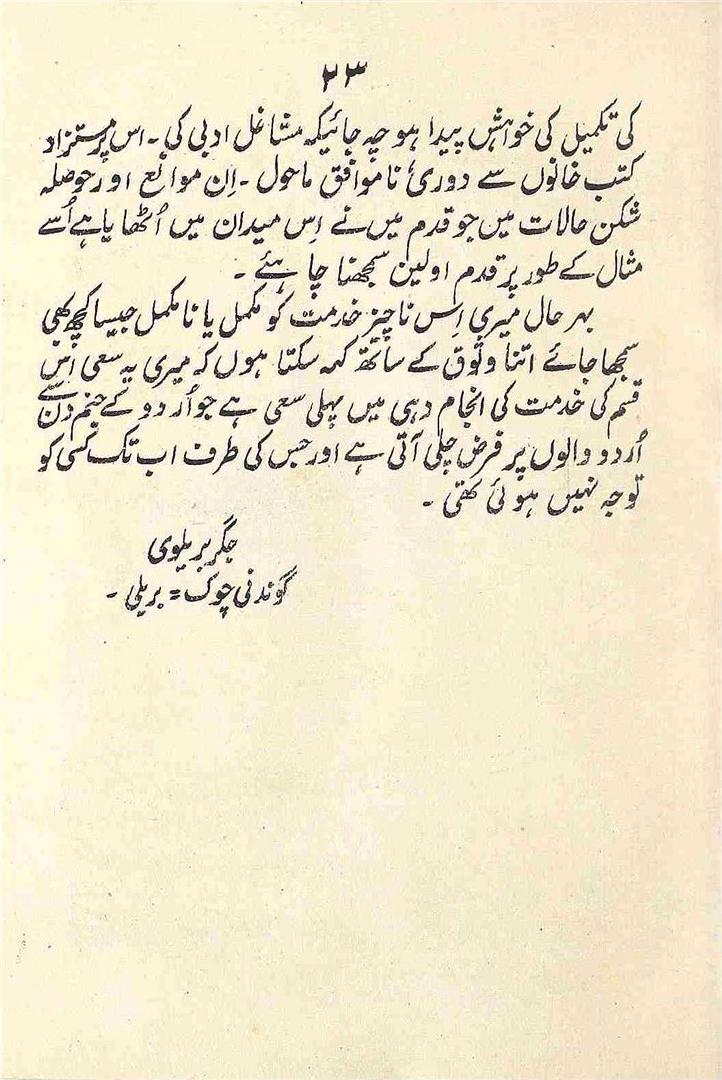 ۲۳
کی تکمیل کی خواہش پیدا ہو چہ جائیکہ مشاغل ادبی کی۔ اس پر مستزاد
کتب خانوں سے دوری، ناموافق ماحول۔ اِن موانع اور حوصلہ
شکن حالات میں جو قدم میں نے اِس میدان میں اُٹھایا ہے اُسے
مثال کے طور پر قدم اولین سمجھنا چاہئے۔
بہر حال میری اِس ناچیز خدمت کو مکمل یا نامکمل جیسا کچھ بھی
سمجھا جائے اتنا وثوق کے ساتھ کہہ سکتا ہوں کہ میری یہ سعی اِس
قسم کی خدمت کی انجام دہی میں پہلی سعی ہے جو اُردو کے جنم دن سے
اُردو والوں پر فرض چلی آتی ہے اور جس کی طرف اب تک کسی کو
توجہ نہیں ہوئی تھی۔
جگر بریلوی
گوندنی چوک = بریلی۔